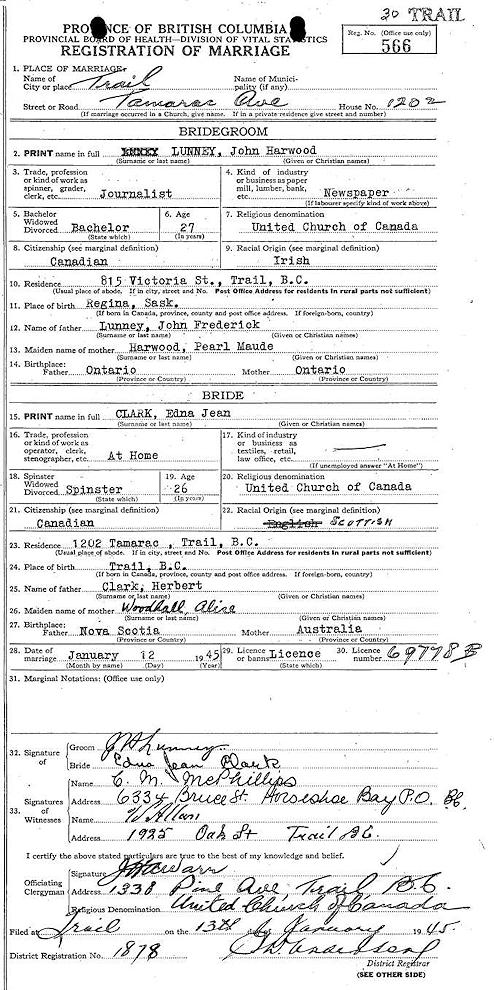 30 TRAIL
PROVINCE OF BRITISH COLUMBIA
PROVINCIAL BOARD OF HEALTH—DIVISION OF VITAL STATISTICS
REGISTRATION OF MARRIAGE
Reg. No. (Office use only)
566
1. PLACE OF MARRIAGE:
Name of City or place Trail Name of Municipality (if any)
Street or Road Tamarac Ave House No. 1202
(If marriage occurred in a Church, give name. If in a private residence give street and number)
BRIDEGROOM
2. PRINT name in full LUNNEY, John Harwood
(Surname or last name) (Given or Christian names)
3. Trade, profession or kind of work as spinner, grader, clerk, etc. Journalist
4. Kind of industry or business as paper mill, lumber, bank, etc. Newspaper
(If labourer specify kind of work above)
5. Bachelor Widowed Divorced Bachelor
(State which)
6. Age 27
(In years)
7. Religious denomination
United Church of Canada
8. Citizenship (see marginal definition)
Canadian
9. Racial Origin (see marginal definition)
Irish
10. Residence 815 Victoria St., Trail, B.C.
(Usual place of abode. If in city, street and No. Post Office Address for residents in rural parts not sufficient)
11. Place of birth Regina, Sask.
(If born in Canada, province, county and post office address. If foreign-born, country)
12. Name of father Lunney, John Frederick
(Surname or last name) (Given or Christian names)
13. Maiden name of mother Harwood, Pearl Maude
(Surname or last name) (Given or Christian names)
14. Birthplace:
Father Ontario Mother Ontario
(Province or Country) (Province or Country)
BRIDE
15. PRINT name in full CLARK, Edna Jean
(Surname or last name) (Given or Christian names)
16. Trade, profession or kind of work as operator, clerk, stenographer, etc. At Home
17. Kind of industry or business as textiles, retail, law office, etc.
(If unemployed answer "At Home")
18. Spinster Widowed Divorced Spinster
(State which)
19. Age 26
(In years)
20. Religious denomination
United Church of Canada
21. Citizenship (see marginal definition)
Canadian
22. Racial Origin (see marginal definition)
English SCOTTISH
23. Residence 1202 Tamarac , Trail, B.C.
(Usual place of abode. If in city, street and No. Post Office Address for residents in rural parts not sufficient)
24. Place of birth Trail, B.C.
(If born in Canada, province, county and post office address. If foreign-born, country)
25. Name of father Clark, Herbert
(Surname or last name) (Given or Christian names)
26. Maiden name of mother Woodhall, Alice
(Surname or last name) (Given or Christian names)
27. Birthplace:
Father Nova Scotia Mother Australia
(Province or Country) (Province or Country)
28. Date of marriage January 12 1945
(Month by name) (Day) (Year)
29. Licence or banns Licence
(State which)
30. Licence number 69778B
31. Marginal Notations: (Office use only)
32. Signature of
Groom J H Lunney
Bride Edna Jean Clark
33. Signatures of Witnesses
Name C. M. McPhillips
Address 6334 Bruce St. Horseshoe Bay P.O. BC.
Name Allan
Address 1925 Oak St Trail BC.
I certify the above stated particulars are true to the best of my knowledge and belief.
Officiating Clergyman
Signature
Address 1338 Pine Ave, Trail B.C.
Religious Denomination United Church of Canada
Filed at Trail on the 13th of January 1945.
District Registration No. 1878
District Registrar
(SEE OTHER SIDE)